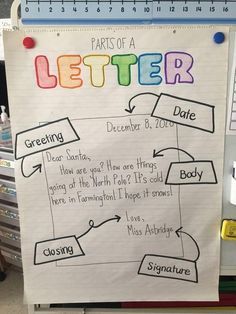 PARTS OF A
LETTER
Date
Greeting
December 8, 2020
Dear Santa,
How are you? How are things
going at the North Pole? It's cold
here in Farmington! I hope it snows!
Body
Love,
Miss Asbridge
Closing
Signature